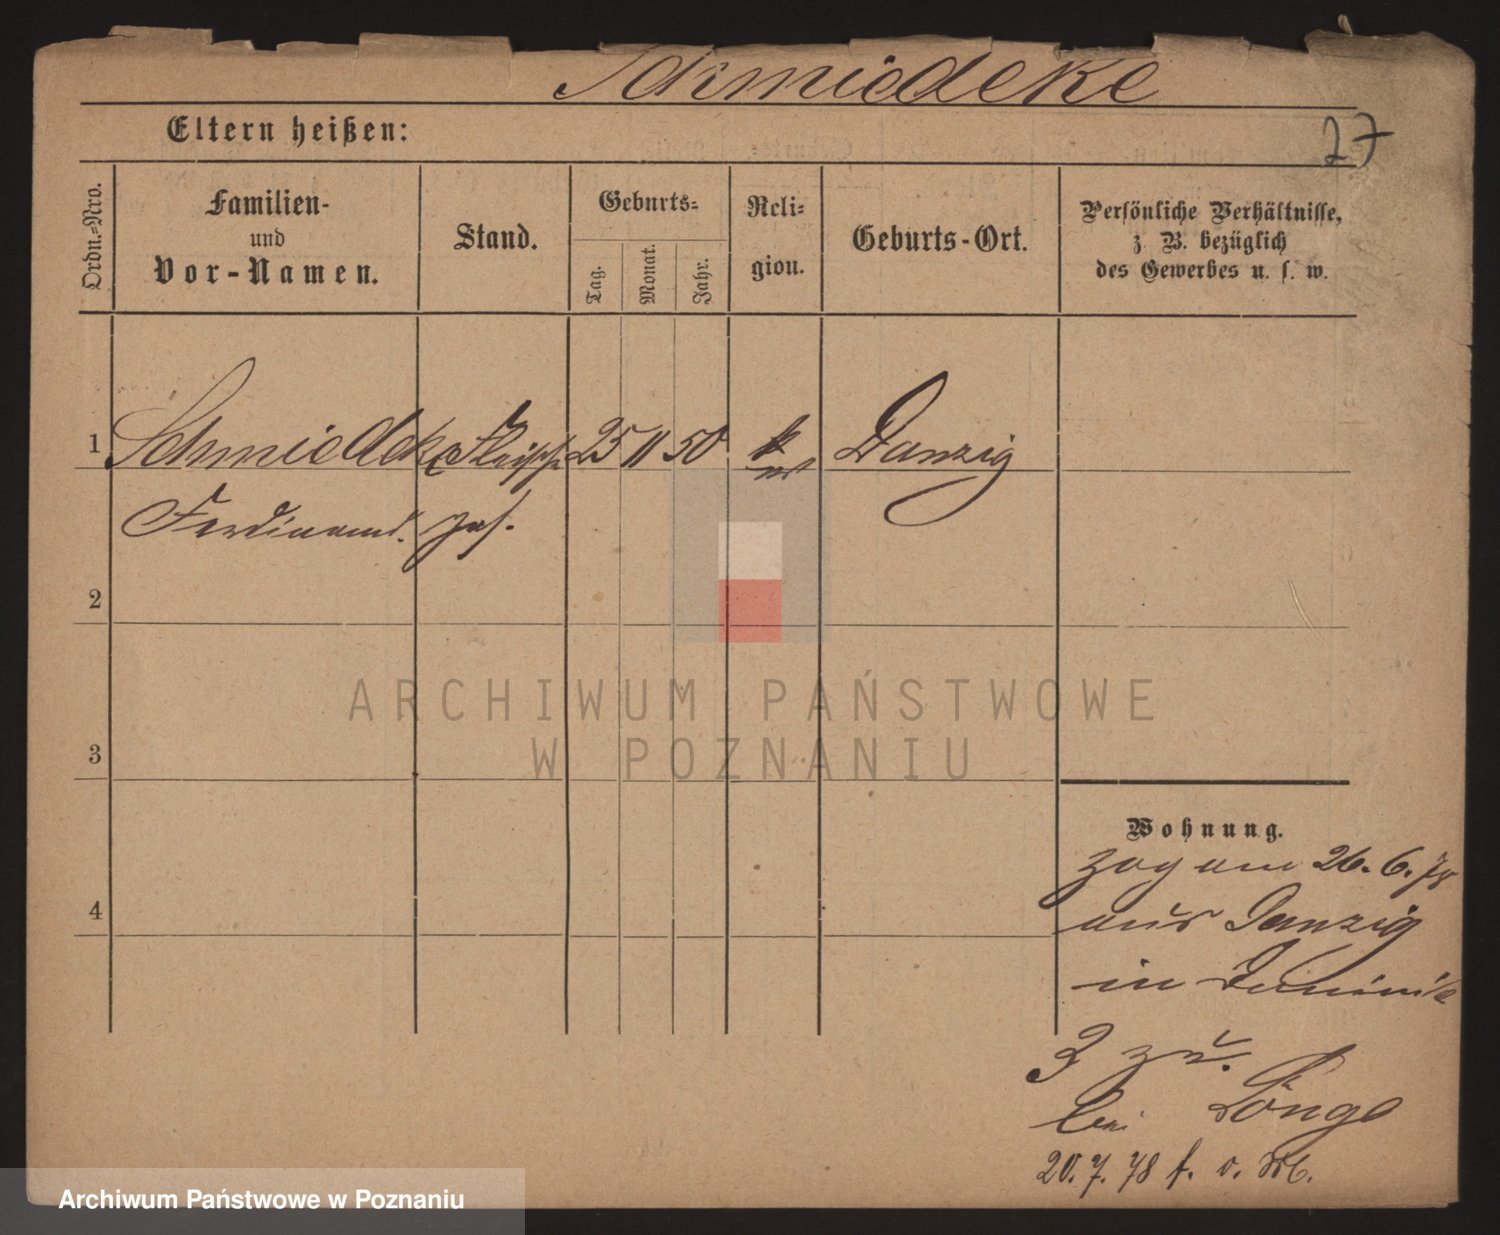 Schmiedeke
Eltern heißen:
27
Ordn.=Nro.
Familien-
und
Vor-Namen.
Stand.
Geburts=
Tag.
Monat.
Jahr.
Reli=
gion.
Geburts-Ort.
Persönliche Verhältnisse,
z. B. bezüglich
des Gewerbes u. s. w.
1 Schmiedeke 25 11 50 k Danzig
Ferdinand. ges.
2
ARCHIWUM PAŃSTWOWE
W POZNANIU
3
Wohnung.
zog am 26. 6. 78
aus Danzig
4
in Dominik
3 zu.
bei
20. 7. 78 f. v.
Archiwum Państwowe w Poznaniu